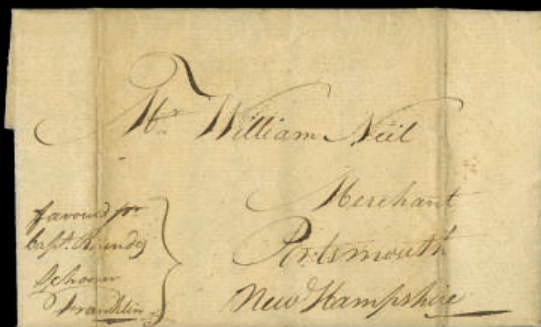 Mr. William Neil
Merchant
Portsmouth
New Hampshire
favoured pr.
Capt. Roundy
Schooner
Franklin